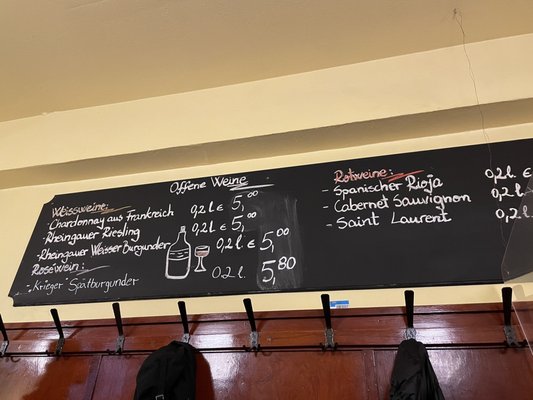 Offene Weine
Weissweine:
-Chardonnay aus Frankreich 0,2 l € 5,00
-Rheingauer Riesling 0,2 l € 5,00
-Rheingauer Weisser Burgunder 0,2 l € 5,00
Roséwein:
-Krieger Spätburgunder 0,2 l 5,80
Rotweine:
- Spanischer Rioja 0,2 l €
- Cabernet Sauvignon 0,2 l
- Saint Laurent 0,2 l